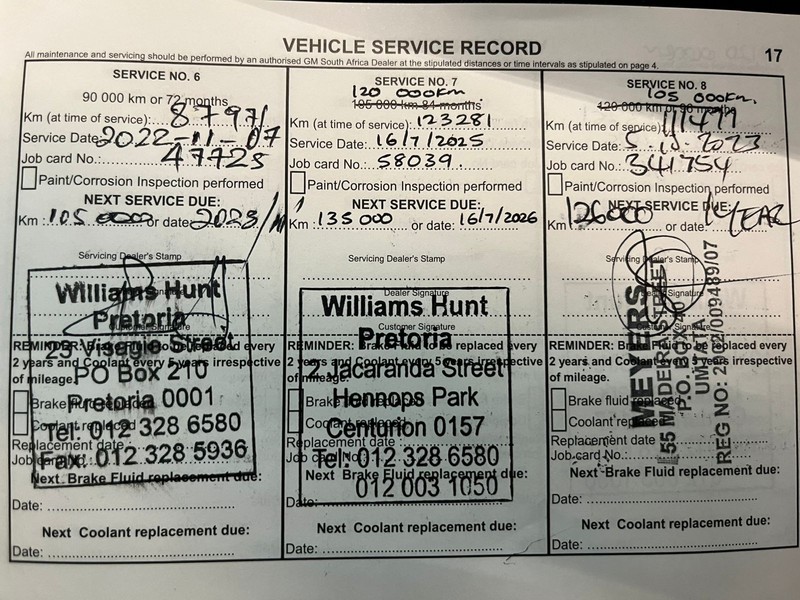 VEHICLE SERVICE RECORD
17
All maintenance and servicing should be performed by an authorised GM South Africa Dealer at the stipulated distances or time intervals as stipulated on page 4.
SERVICE NO. 6
90 000 km or 72 months
Km (at time of service): 87971
Service Date: 2022-11-07
Job card No.: 47725
Paint/Corrosion Inspection performed
NEXT SERVICE DUE:
Km : 105 000 or date: 2023/11/
Servicing Dealer's Stamp
Customer Signature
Williams Hunt
Pretoria
25 Visagie Street
PO Box 210
Pretoria 0001
Tel: 012 328 6580
Fax: 012 328 5936
REMINDER: Brake Fluid to be replaced every
2 years and Coolant every 5 years irrespective
of mileage.
Brake fluid replaced
Coolant replaced
Replacement date :
Job card No.:
Next Brake Fluid replacement due:
Date:
Next Coolant replacement due:
Date:
SERVICE NO. 7
120 000km
105 000 km 84 months
Km (at time of service): 123281
Service Date: 16/7/2025
Job card No.: 58039
Paint/Corrosion Inspection performed
NEXT SERVICE DUE:
Km : 135 000 or date: 16/7/2026
Servicing Dealer's Stamp
Dealer Signature
Customer Signature
Williams Hunt
Pretoria
2 Jacaranda Street
Hennops Park
Centurion 0157
Tel: 012 328 6580
012 003 1050
REMINDER: Brake Fluid to be replaced every
2 years and Coolant every 5 years irrespective
of mileage.
Brake fluid replaced
Coolant replaced
Replacement date :
Job card No.:
Next Brake Fluid replacement due:
Date:
Next Coolant replacement due:
Date:
SERVICE NO. 8
105 000km.
120 000 km or 96 months
Km (at time of service): 111477
Service Date: 5-10-2023
Job card No.: 341754
Paint/Corrosion Inspection performed
NEXT SERVICE DUE:
Km 126000 or date: 1 YEAR
Servicing Dealer's Stamp
MEYERS
55 MADEIRA STREET
P.O. BOX
UMTATA
REG NO: /009489/07
REMINDER: Brake Fluid to be replaced every
2 years and Coolant every 5 years irrespective
of mileage.
Brake fluid replaced
Coolant replaced
Replacement date
Job card No.:
Next Brake Fluid replacement due:
Date:
Next Coolant replacement due:
Date: